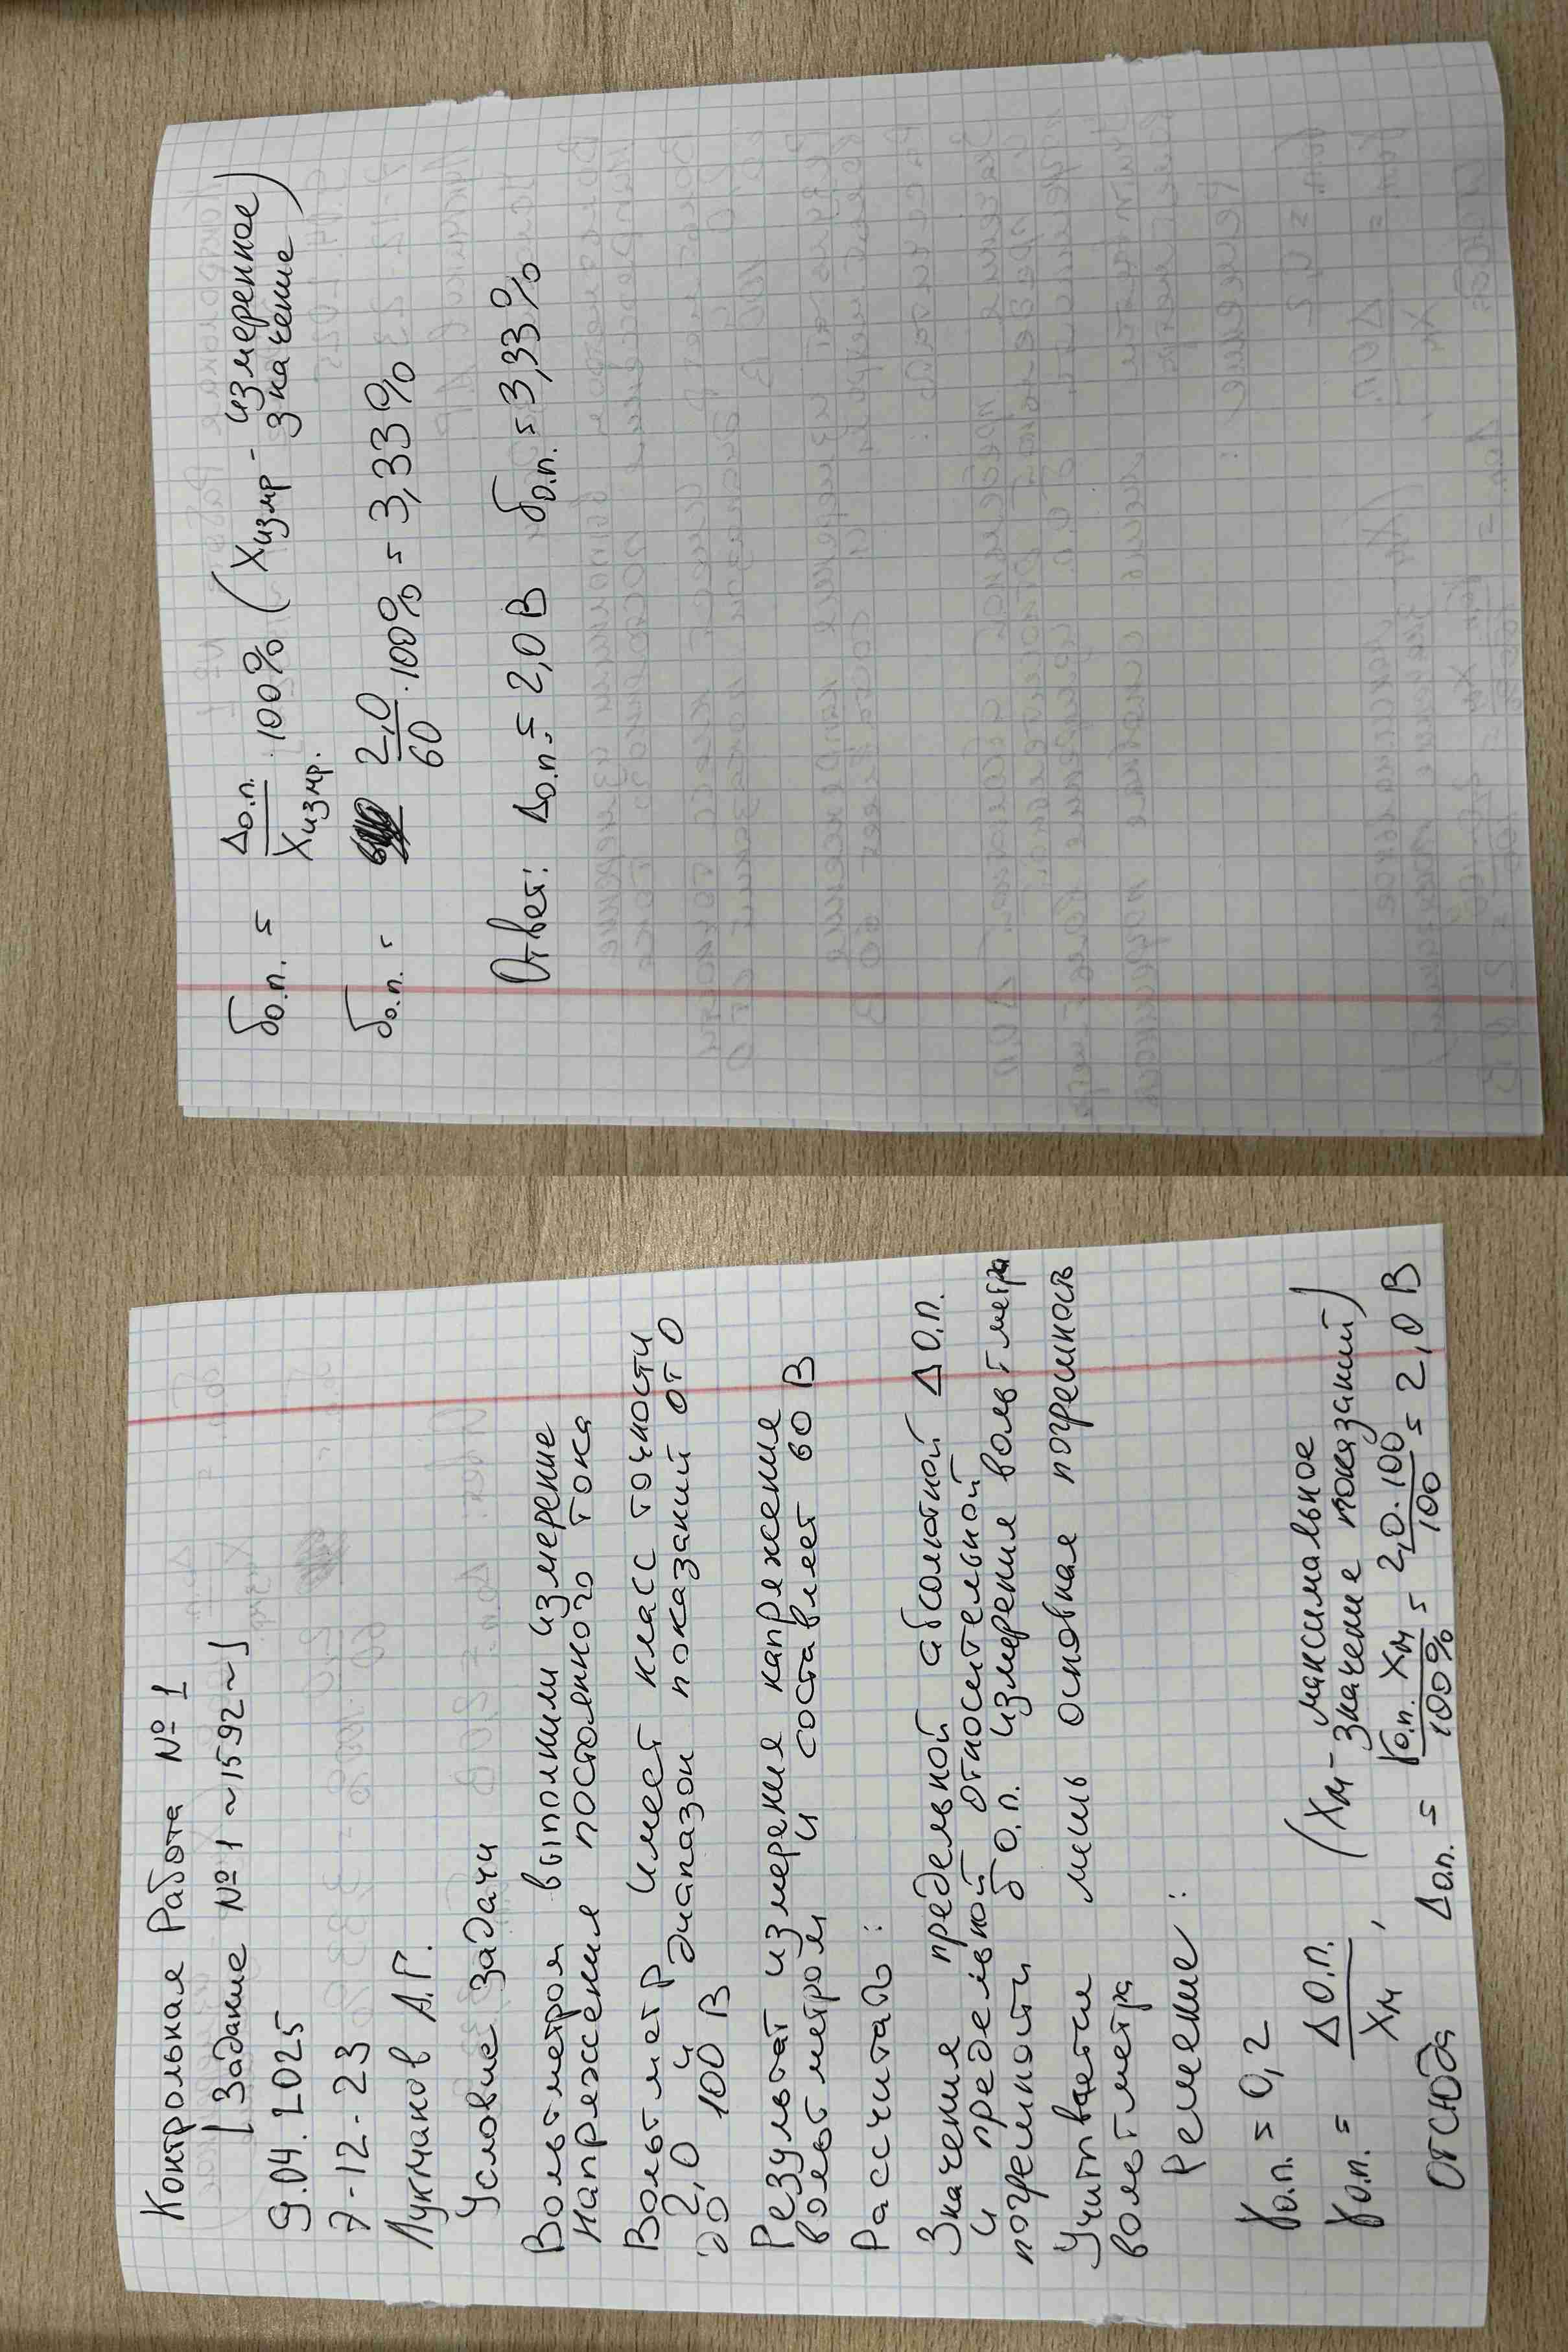 Контрольная Работа № 1
[Задание №1 ~1592~]
9.04.2025
Э-12-23
Лукманов А.Г.
Условие задачи
Вольтметром выполнили измерение
напряжения постоянного тока
Вольтметр имеет класс точности
2,0 и диапазон показаний от 0
до 100 В
Результат измерения напряжения
вольтметром и составляет 60 В
Рассчитать:
Значения предельной абсолютной Δо.п.
и предельной относительной
погрешности δо.п. измерения вольтметра
Учитывается лишь основная погрешность
вольтметра
Решение:
γо.п. = 0,2
γо.п. = Δо.п. / Xм , (Xм - максимальное
значение показаний)
отсюда Δо.п. = γо.п. Xм / 100% = 2,0·100 / 100 = 2,0 В
δо.п. = Δо.п. / Xизмр. · 100% (Xизмр - измеренное
значение)
δо.п. = 2,0 / 60 · 100% = 3,33%
Ответ: Δо.п. = 2,0 В δо.п. = 3,33%